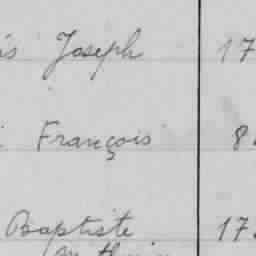 Joseph 17
François 8
Baptiste 17